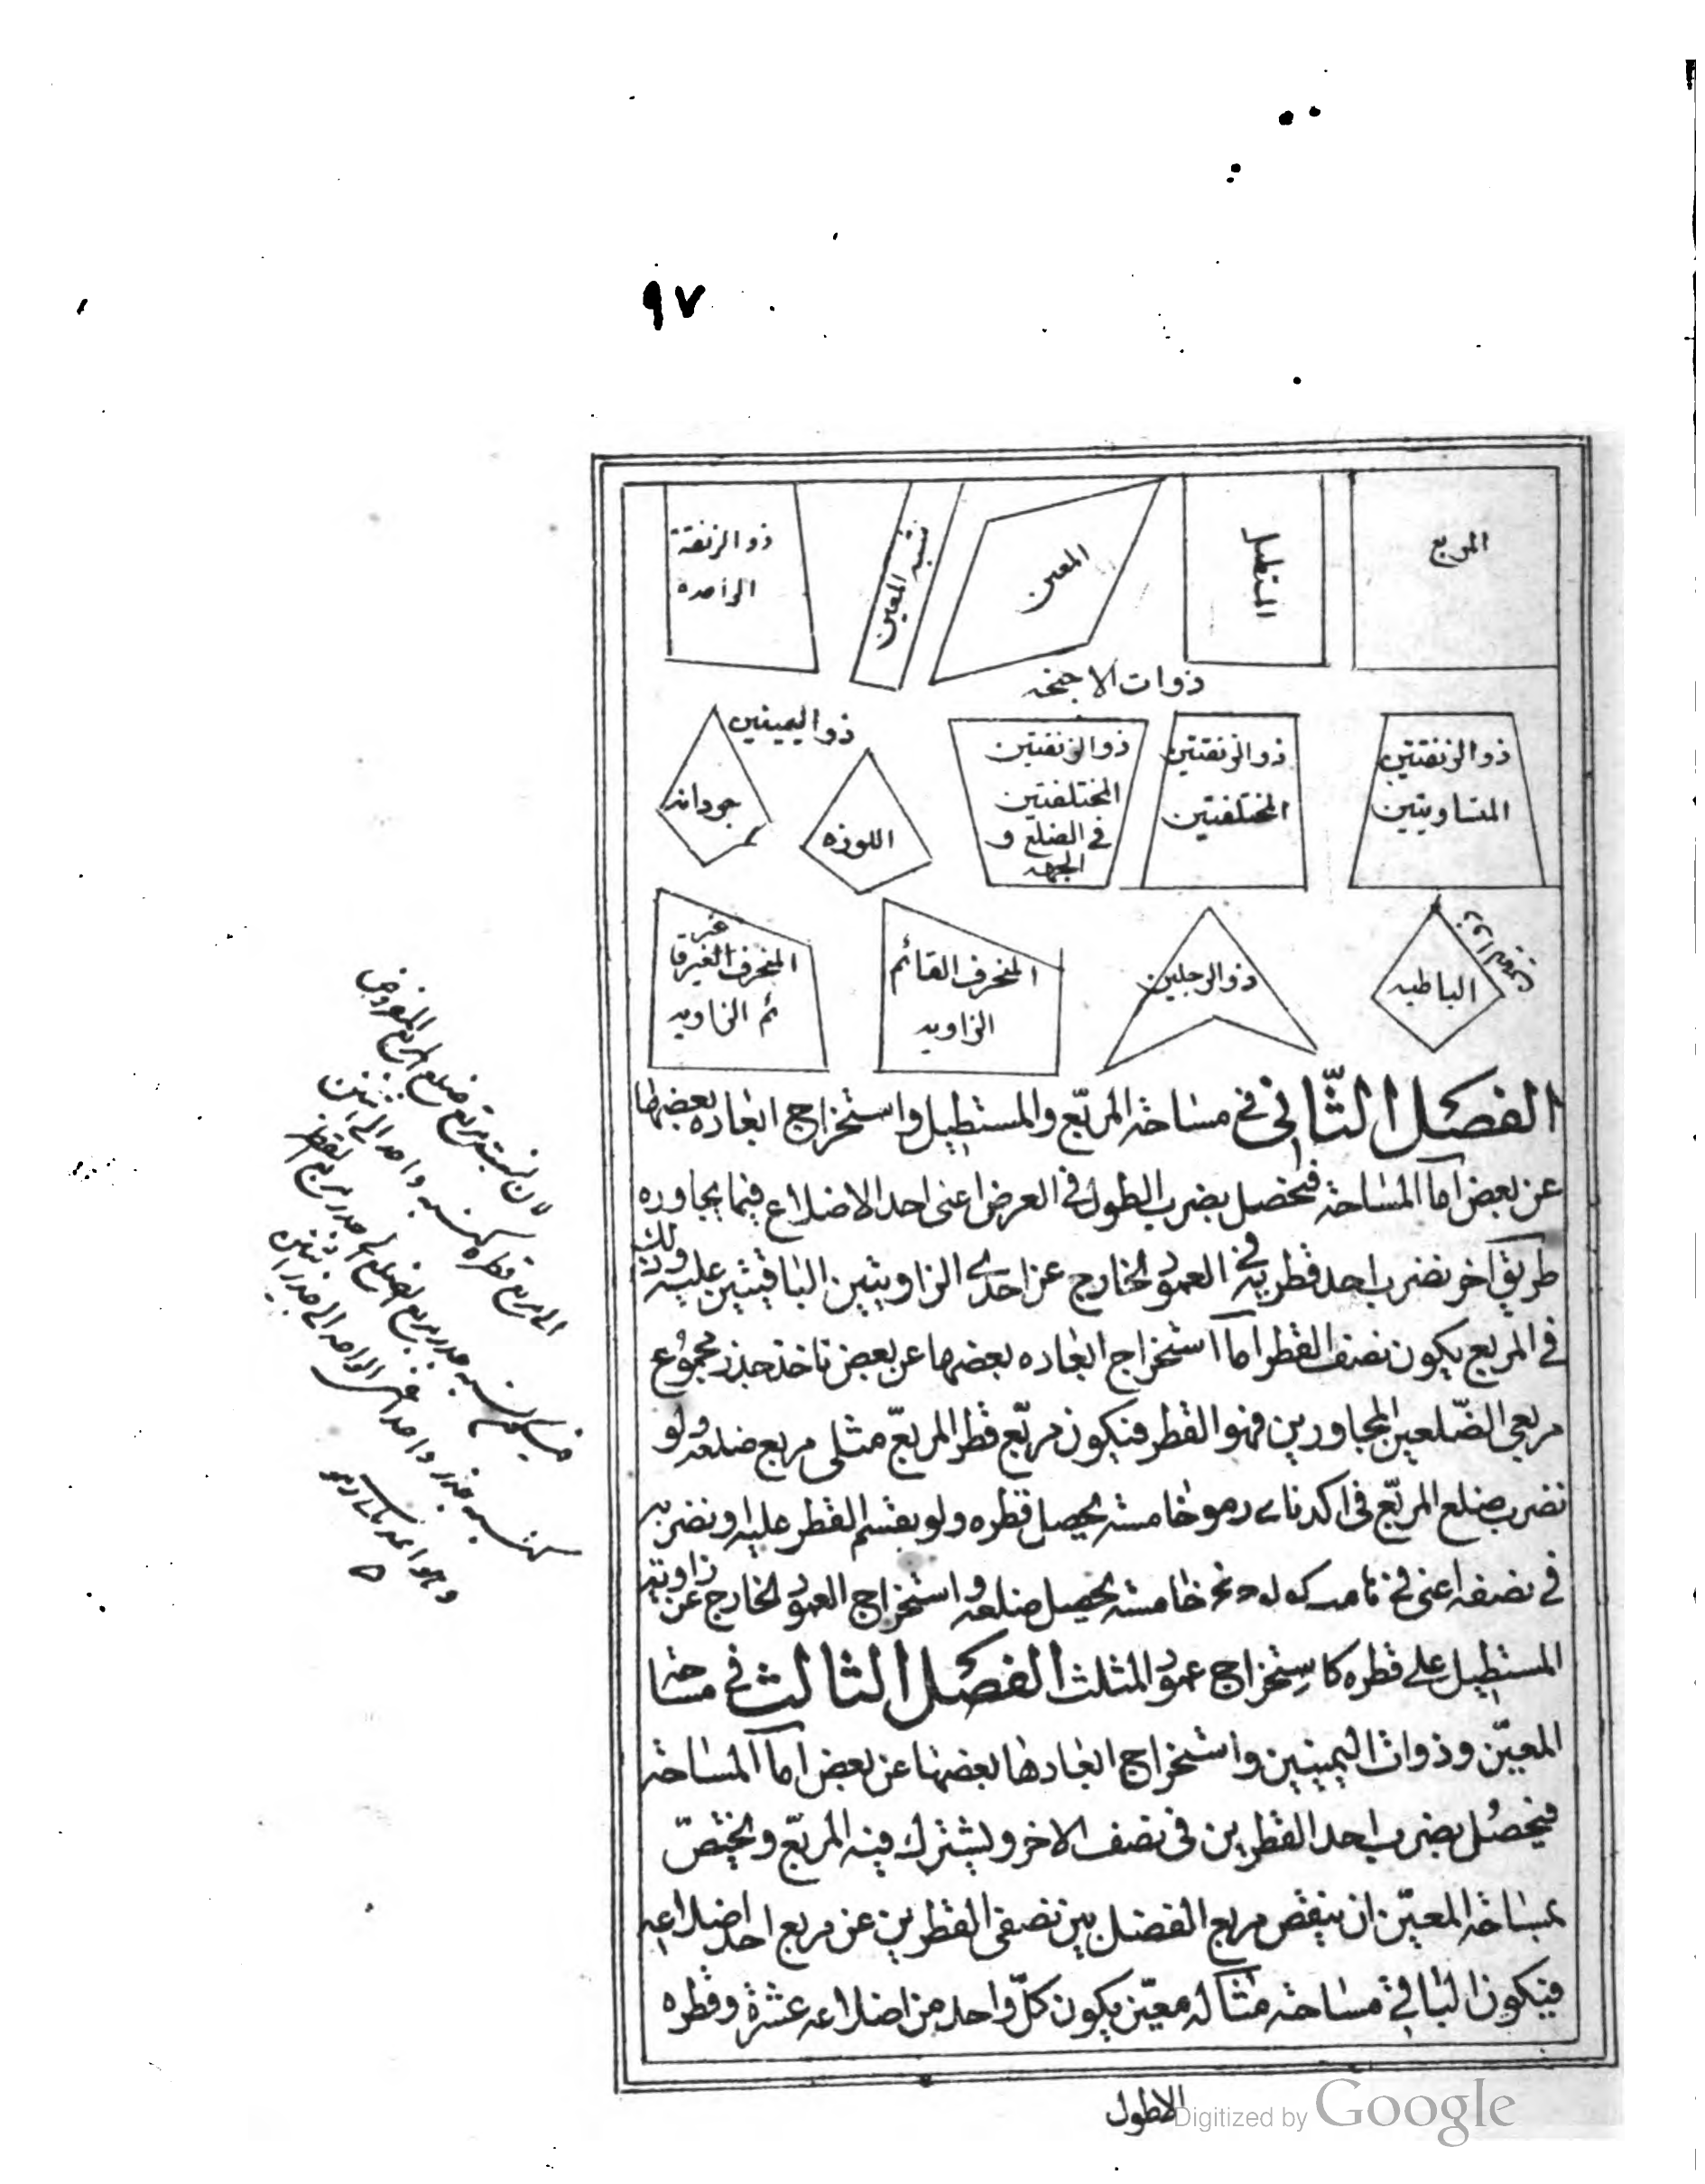 ٩٧
المربع
المستطيل
المعين
شبه المعين
ذو الزنقة
الواحدة
ذوات الاجنحه
ذو الزنقتين
المتساويتين
ذو الزنقتين
المختلفتين
ذو الزنقتين
المختلفتين
في الضلع و
الجهه
ذو اليمينين
اللوزه
جودانه
الباطيه
ذو الرجلين
المنحرف القائم
الزاويه
المنحرف الغير قا
ئم الزاويه
الفصل الثّاني في مساحة المربّع والمستطيل واستخراج ابعاده بعضها
عن بعض امّا المساحة فتحصل بضرب الطول في العرض اعنى احد الاضلاع فيما يجاوره
طريق آخر نضرب احد قطريه في العمود الخارج عن احدى الزاويتين الباقيتين عليه وذلك
في المربع يكون نصف القطر امّا استخراج ابعاده بعضها عن بعض ناخذ جذر مجموع
مربعي الضّلعين المجاورين فهو القطر فيكون مربّع قطر المربّع مثلى مربع ضلعه ولو
نضرب ضلع المربّع في خامسة يحصل قطره ولو نقسم القطر عليه او نضربه
في نصفه اعنى في خامسة يحصل ضلعه واستخراج العمود الخارج عن زاوية
المستطيل على قطره كاستخراج عمود المثلث الفصل الثالث في مساحة
المعيّن وذوات اليمينين واستخراج ابعادها بعضها عن بعض امّا المساحة
فيحصل بضرب احد القطرين في نصف الآخر ويشترك فيه المربّع ويختصّ
بمساحة المعيّن ان ينقص مربع الفضل بين نصفى القطرين عن مربع احد اضلاعه
فيكون الباقي مساحته مثاله معيّن يكون كلّ واحد من اضلاعه عشرة وقطره
الاطول
لان نسبة مربع ضلع المربع المفروض
الى مربع قطره كنسبة واحد الى اثنين
Digitized by Google